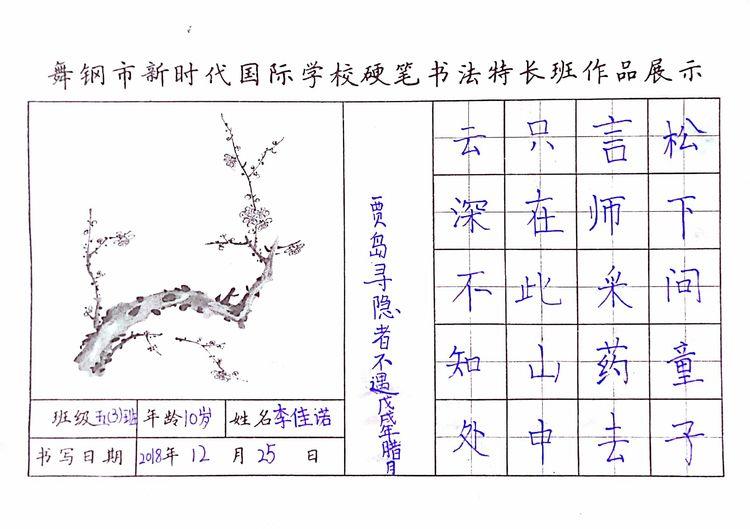 舞钢市新时代国际学校硬笔书法特长班作品展示
松下问童子
言师采药去
只在此山中
云深不知处
贾岛寻隐者不遇戊戌年腊月
班级五(3)班 年龄10岁 姓名李佳诺
书写日期 2018年 12 月 25 日